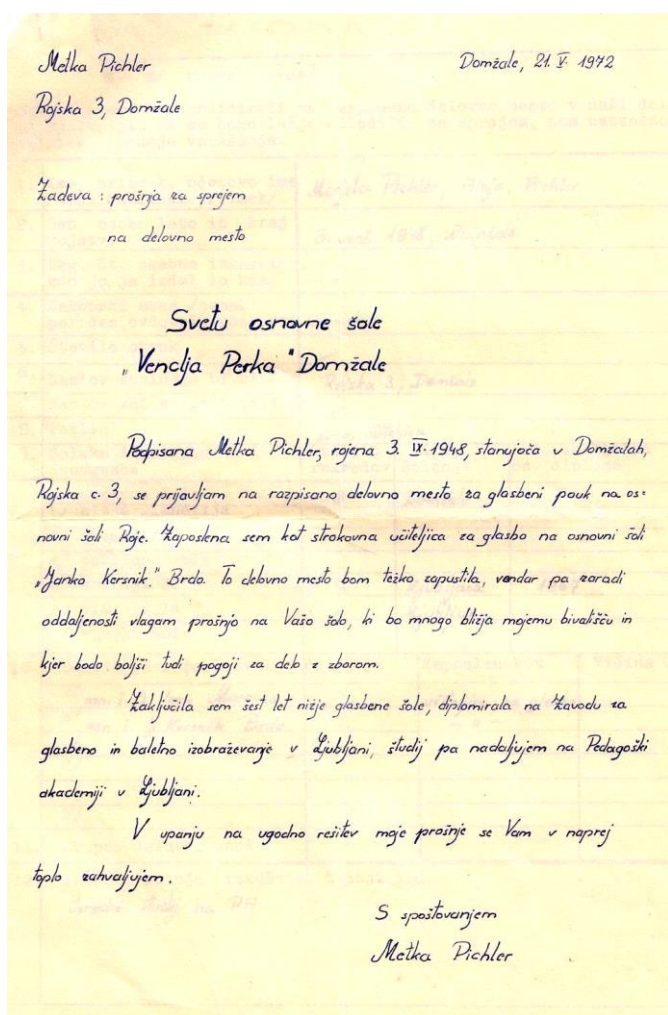 Metka Pichler
Domžale, 21. V. 1972
Rojska 3, Domžale
Zadeva : prošnja za sprejem
na delovno mesto
Svetu osnovne šole
"Venclja Perka" Domžale
Podpisana Metka Pichler, rojena 3. IX. 1948, stanujoča v Domžalah,
Rojska c. 3, se prijavljam na razpisano delovno mesto za glasbeni pouk na os-
novni šoli Roje. Zaposlena sem kot strokovna učiteljica za glasbo na osnovni šoli
"Janko Kersnik," Brdo. To delovno mesto bom težko zapustila, vendar pa zaradi
oddaljenosti vlagam prošnjo na Vašo šolo, ki bo mnogo bližja mojemu bivališču in
kjer bodo boljši tudi pogoji za delo z zborom.
Zaključila sem šest let nižje glasbene šole, diplomirala na Zavodu za
glasbeno in baletno izobraževanje v Ljubljani, študij pa nadaljujem na Pedagoški
akademiji v Ljubljani.
V upanju na ugodno rešitev moje prošnje se Vam v naprej
toplo zahvaljujem.
S spoštovanjem
Metka Pichler